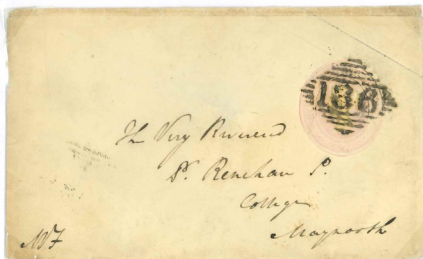 186
The Very Reverend
Dr. Renehan P.
College
Maynooth